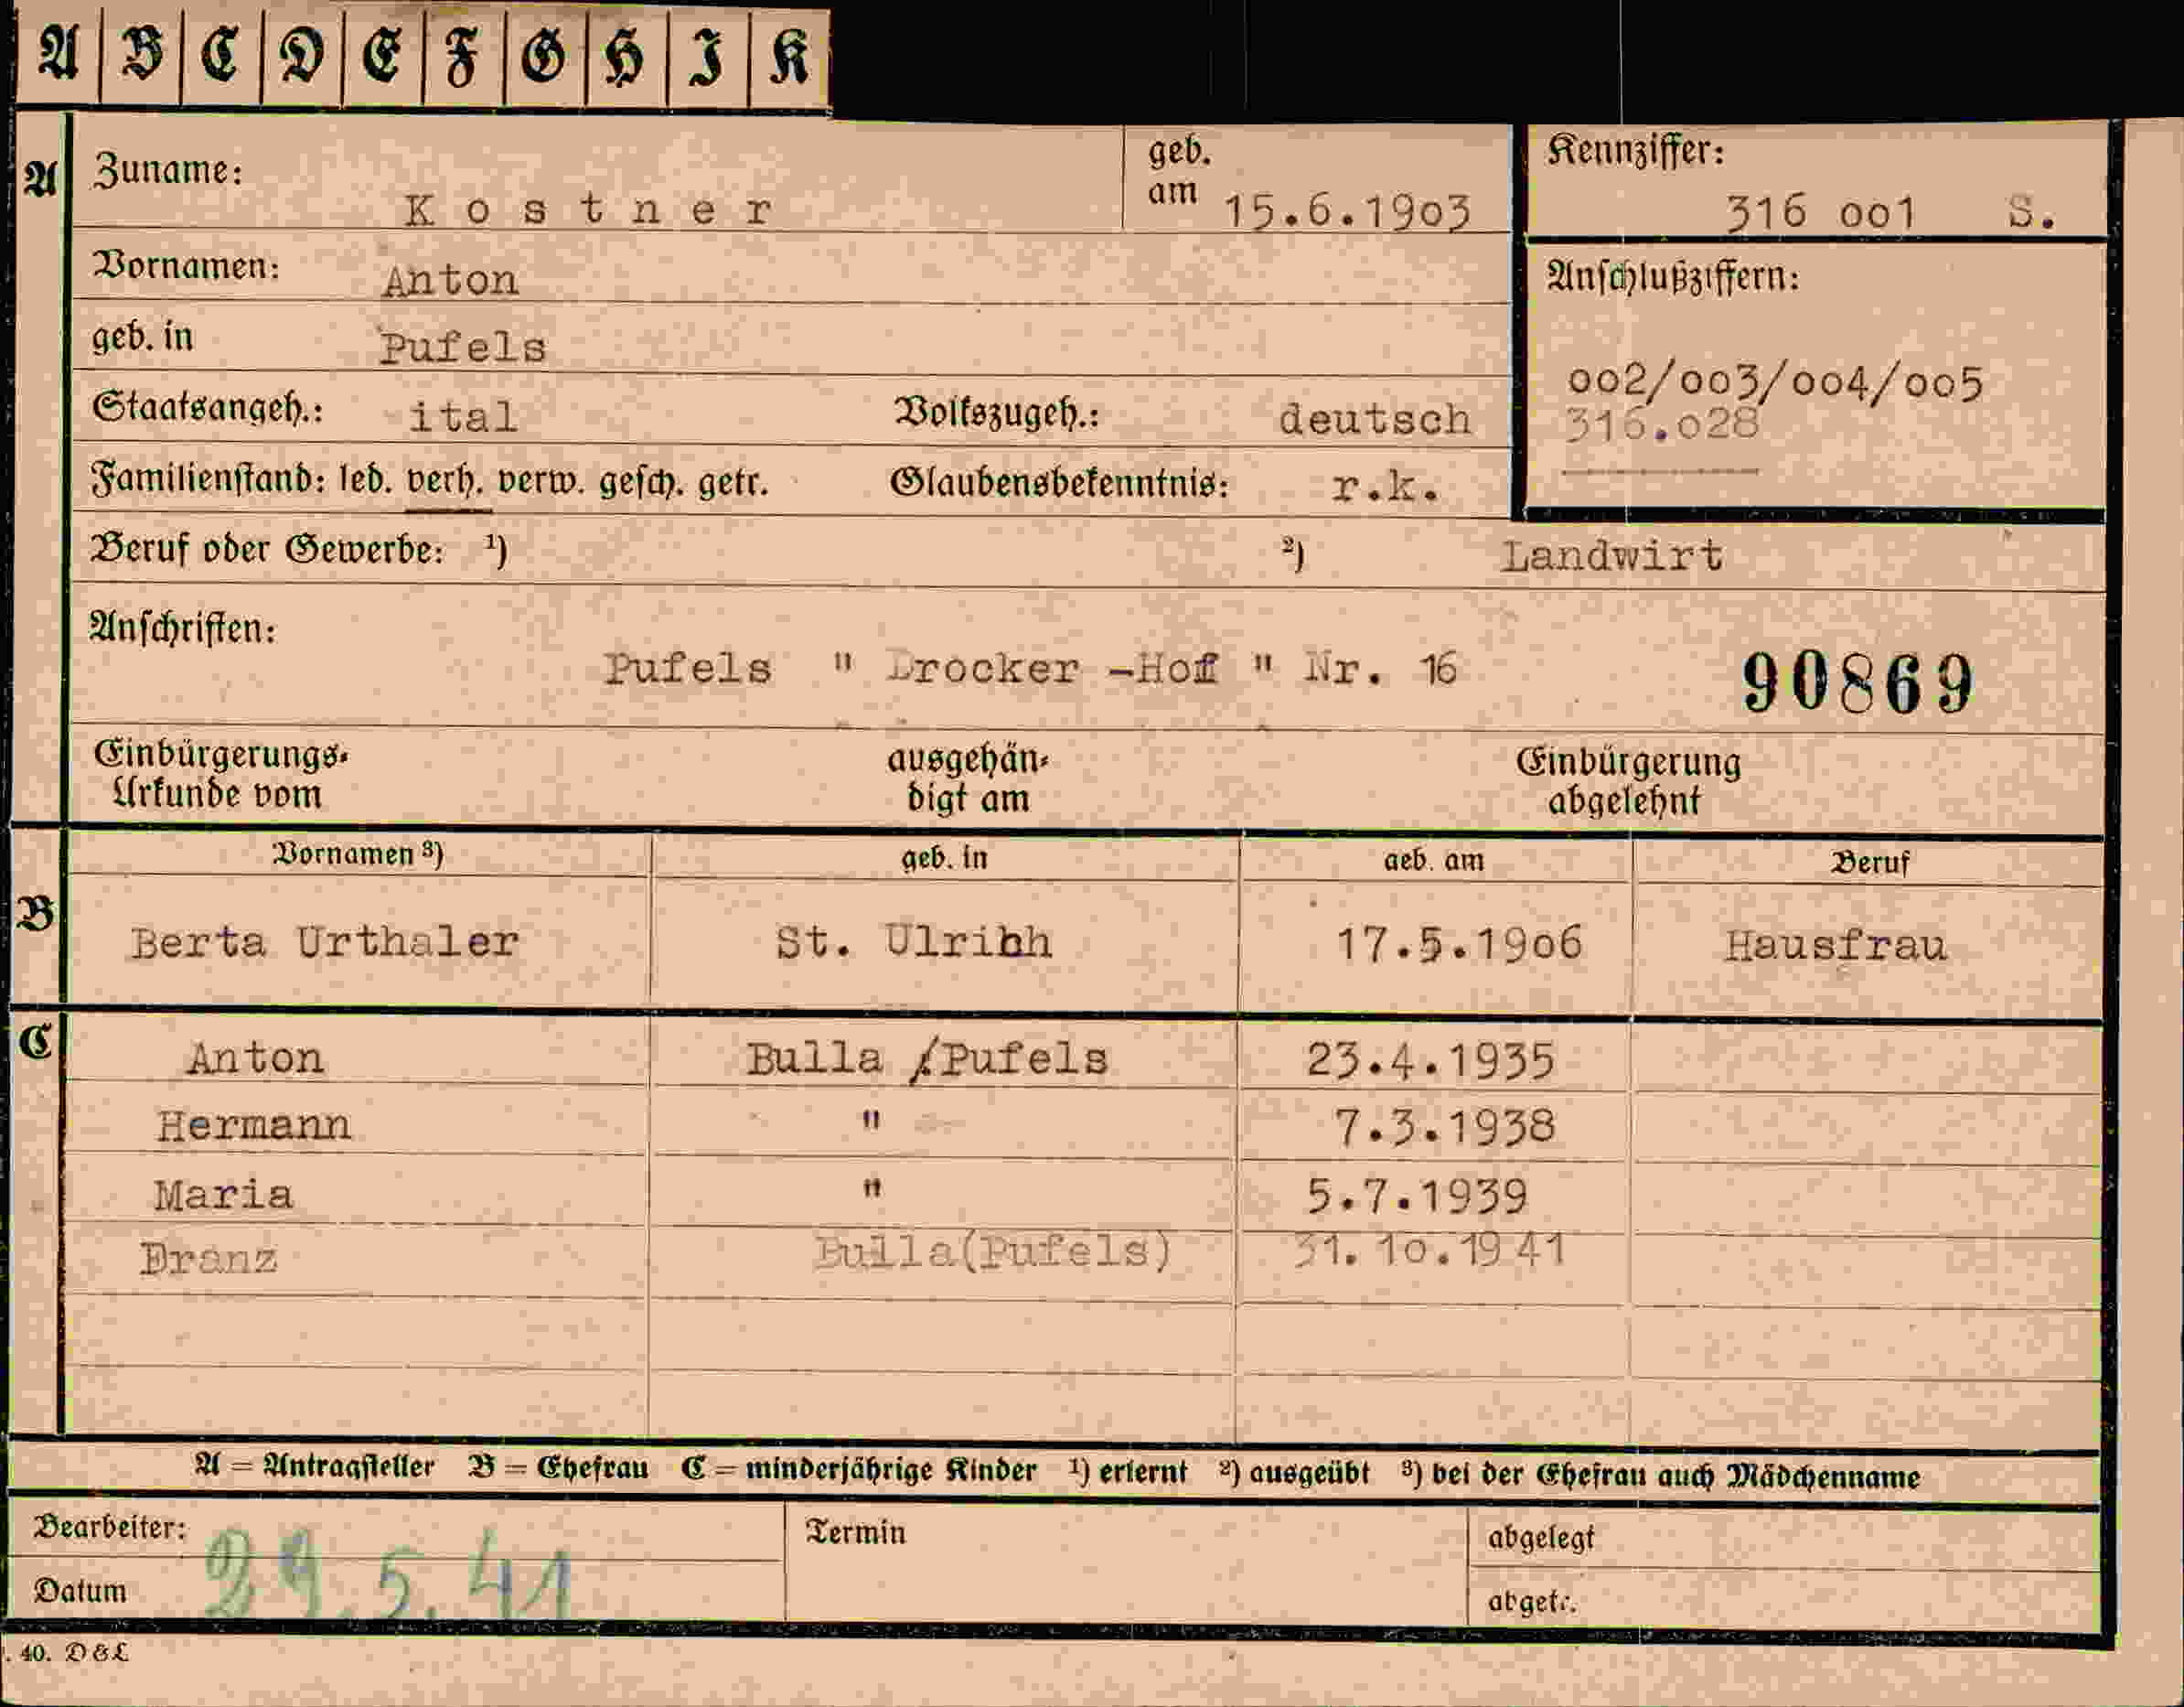 A B C D E F G H I K
A Zuname: Kostner geb. am 15.6.1903 Kennziffer: 316 001 S.
Vornamen: Anton Anschlußziffern:
geb. in Pufels 002/003/004/005
Staatsangeh.: ital Volkszugeh.: deutsch 316.028
Familienstand: led. verh. verw. gesch. getr. Glaubensbekenntnis: r.k.
Beruf oder Gewerbe: ¹) ²) Landwirt
Anschriften:
Pufels " -Hoff " Nr. 16 90869
Einbürgerungs- ausgehän- Einbürgerung
Urkunde vom digt am abgelehnt
Vornamen ³) geb. in geb. am Beruf
B Berta Urthaler St. Ulrihh 17.5.1906 Hausfrau
C Anton Bulla /Pufels 23.4.1935
Hermann " 7.3.1938
Maria " 5.7.1939
Franz Bulla(Pufels) 31.10.1941
A = Antragsteller B = Ehefrau C = minderjährige Kinder ¹) erlernt ²) ausgeübt ³) bei der Ehefrau auch Mädchenname
Bearbeiter: Termin abgelegt
Datum 29.5.41 abgetr.
. 40. D & L